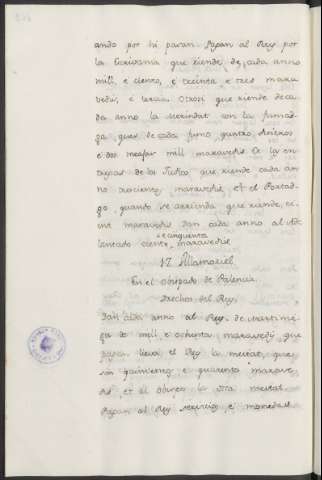 ando por hi pasan. Pagan al Rey por
la Escrivania que riende de cada anno
mill, e ciento, e treinta e tres mara
vedis, e tercia. Otrosi que riende de ca
da anno la Merindat con la fumad-
ga ques de cada fumo quatro dineros
e dos meajas mill maravedis. De la en-
de los Judios que riende cada an-
no trocientos maravedis, et el Portad-
go, quando se arrienda que riende, ci-
ent maravedis dan cada anno al Ade
e cinquenta
lantado ciento, maravedis
17. Villamoriel
En el obispado de Palencia
Drechos del Rey.
Dan cada anno al Rey. de Martinie-
ga de mill e ochenta maravedis que
pagan lieva el Rey la meitat, que
son quinientos e quarenta marave-
dis et el obispo la otra meitat
Pagan al Rey servicios e monedas